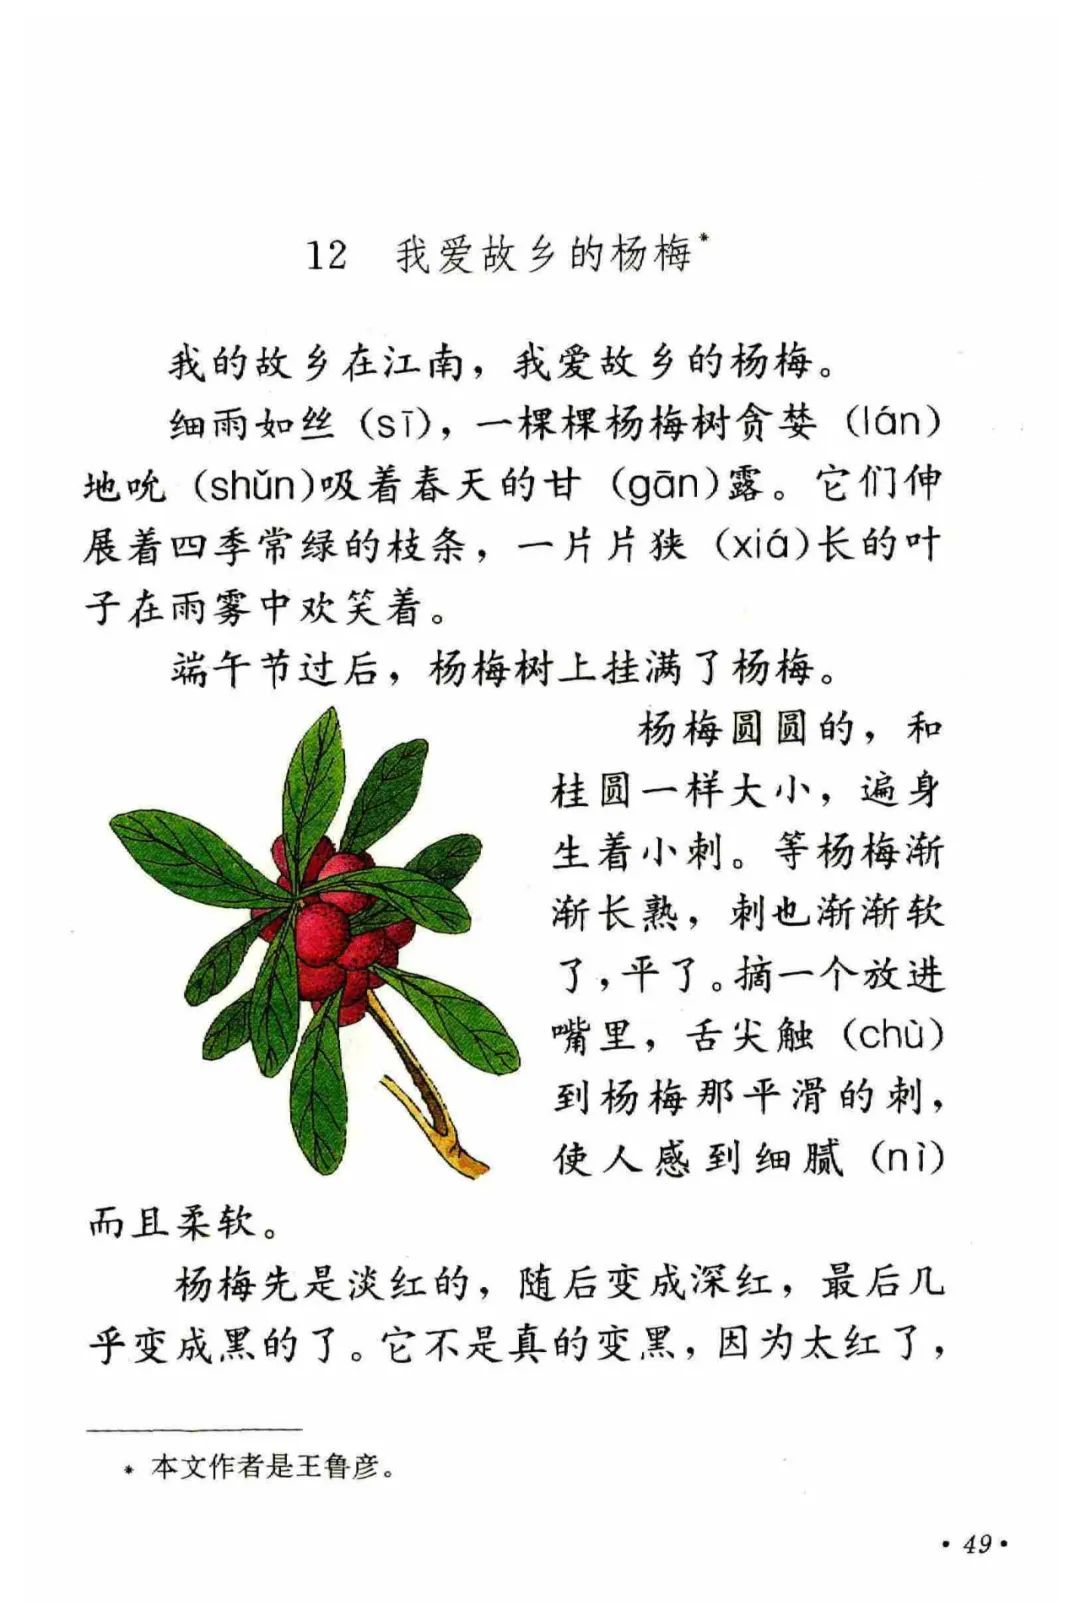 12 我爱故乡的杨梅*
我的故乡在江南，我爱故乡的杨梅。
细雨如丝（sī），一棵棵杨梅树贪婪（lán）
地吮（shǔn）吸着春天的甘（gān）露。它们伸
展着四季常绿的枝条，一片片狭（xiá）长的叶
子在雨雾中欢笑着。
端午节过后，杨梅树上挂满了杨梅。
杨梅圆圆的，和
桂圆一样大小，遍身
生着小刺。等杨梅渐
渐长熟，刺也渐渐软
了，平了。摘一个放进
嘴里，舌尖触（chù）
到杨梅那平滑的刺，
使人感到细腻（nì）
而且柔软。
杨梅先是淡红的，随后变成深红，最后几
乎变成黑的了。它不是真的变黑，因为太红了，
* 本文作者是王鲁彦。
·49·